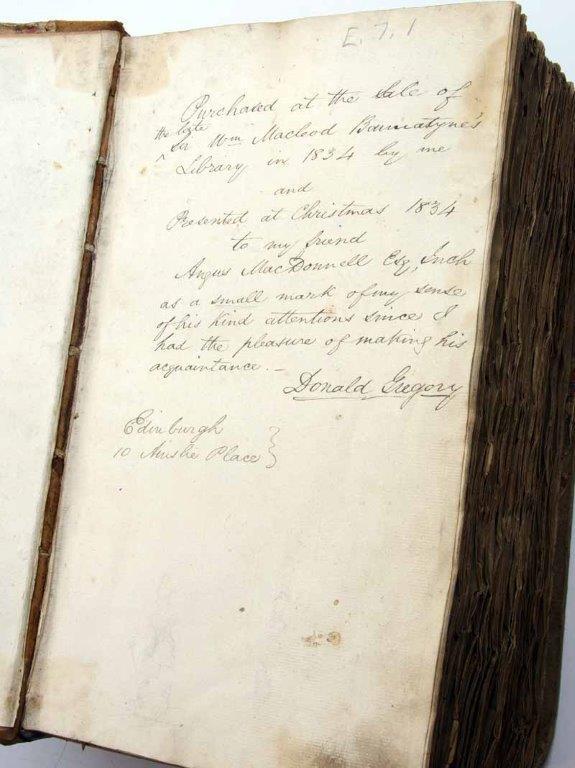 E. 7. 1
Purchased at the Sale of
the late
^ Sir Wm Macleod Bannatyne's
Library in 1834 by me
and
Presented at Christmas 1834
to my friend
Angus MacDonnell Esq, Inch
as a small mark of my sense
of his kind attentions since I
had the pleasure of making his
acquaintance. –
Donald Gregory
Edinburgh
10 Ainslie Place }